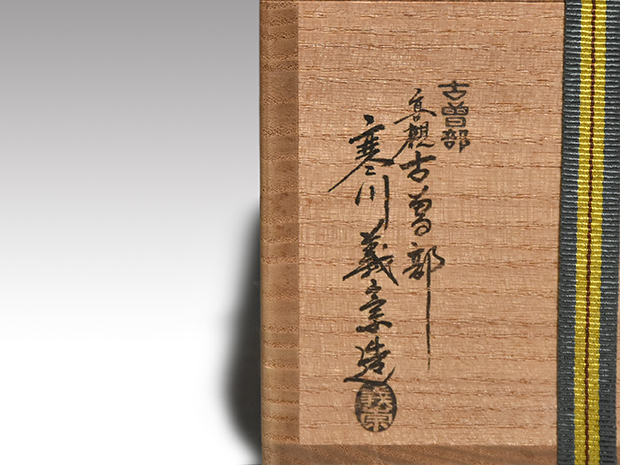 古曽部
高槻古曽部
寒川義崇造
義崇